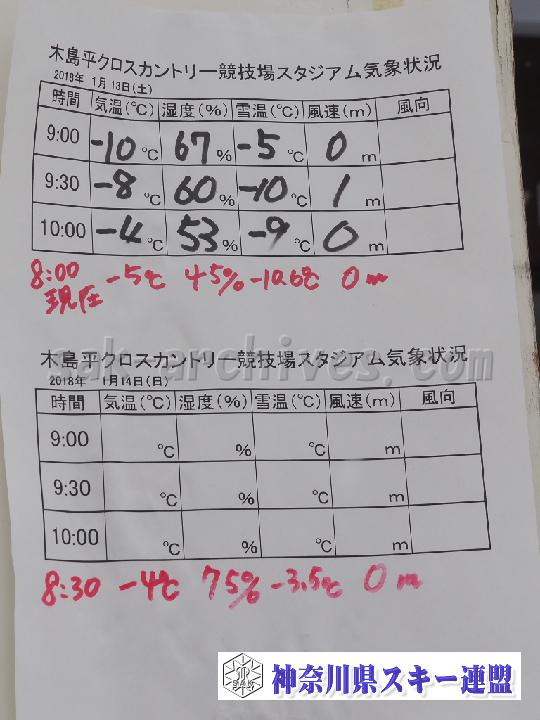 木島平クロスカントリー競技場スタジアム気象状況
2018年 1月 13日(土)
時間 気温(℃) 湿度(%) 雪温(℃) 風速(m) 風向
9:00 -10℃ 67% -5℃ 0m
9:30 -8℃ 60% -10℃ 1m
10:00 -4℃ 53% -9℃ 0m
8:00 -5℃ 45% -10.6℃ 0m
現在
木島平クロスカントリー競技場スタジアム気象状況
sak-archives.com
2018年 1月14日(日)
時間 気温(℃) 湿度(%) 雪温(℃) 風速(m) 風向
9:00 ℃ % ℃ m
9:30 ℃ % ℃ m
10:00 ℃ % ℃ m
8:30 -4℃ 75% -3.5℃ 0m
神奈川県スキー連盟